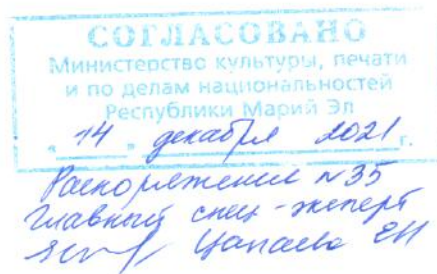 СОГЛАСОВАНО
Министерство культуры, печати
и по делам национальностей
Республики Марий Эл
« 14 » декабря 2021 г.
Распоряжение N 35
Главный спец-эксперт
ЕН